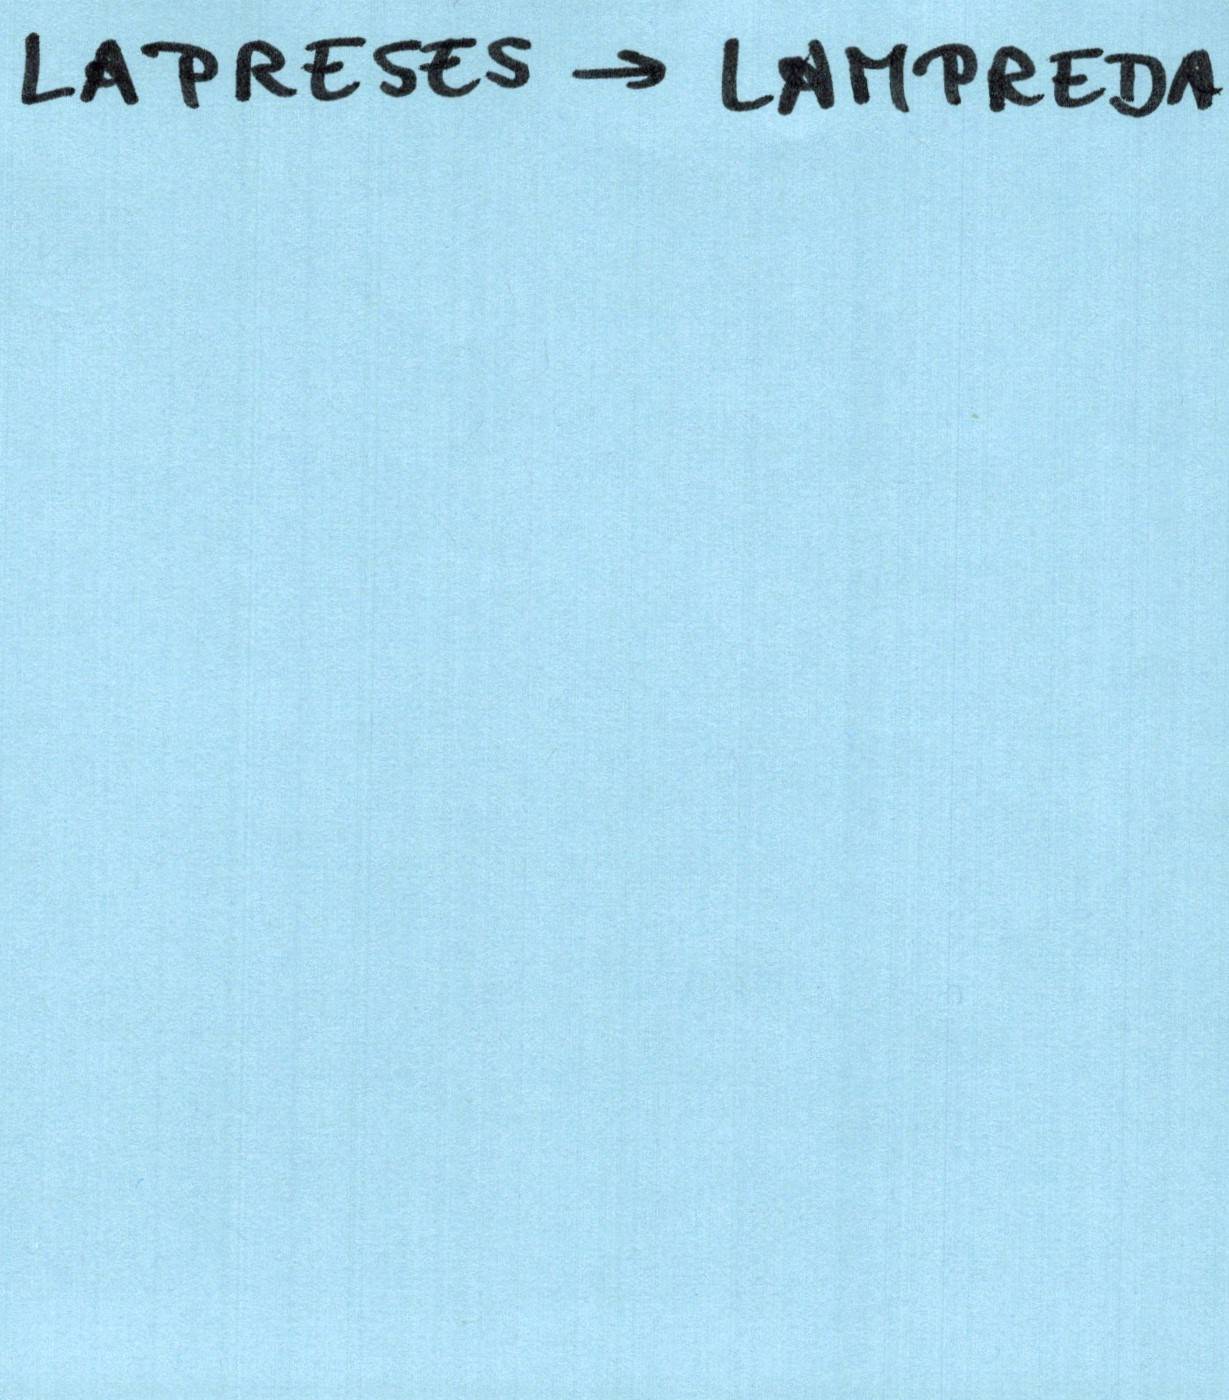 LAPRESES → LAMPREDA